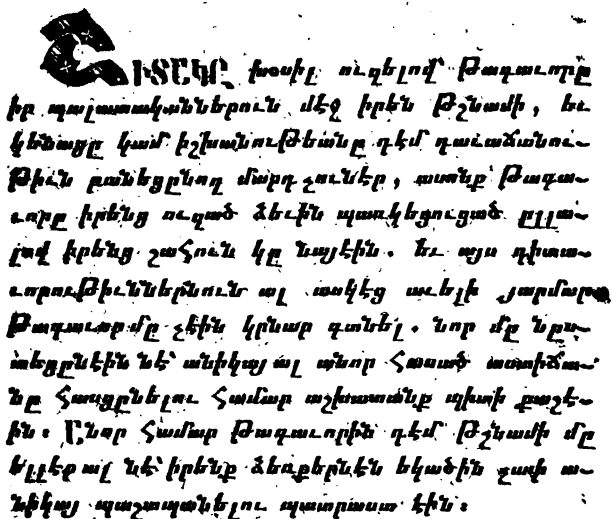 ՇԻՏԱԿԸ խօսիլ ուզելով՝ Թագաւորը
իր պալատականներուն մէջ իրեն թշնամի, եւ
կենացը կամ իշխանութեանը դէմ դաւաճանու-
թիւն ընեցընող մարդ չունէր, ատոնք՝ Թագա-
ւորը իրենց ուզած ձեւին պառկեցուցած ըլլա-
լով իրենց շահուն կը նայէին. եւ այս դիտա-
ւորութիւններնուն ալ ասկէց աւելի յարմար
Թագաւոր մը չէին կրնար գտնել. նոր մը նըս-
տեցընէին նէ՝ անիկայ ալ անոր հասած աստիճա-
նը հասցընելու համար աշխատանք պիտի քաշէ-
ին: Ընոր համար Թագաւորին դէմ թշնամի մը
ելլէր ալ նէ՝ իրենք ձեռքերնէն եկածին չափ ա-
նիկայ պաշտպանելու պատրաստ էին: